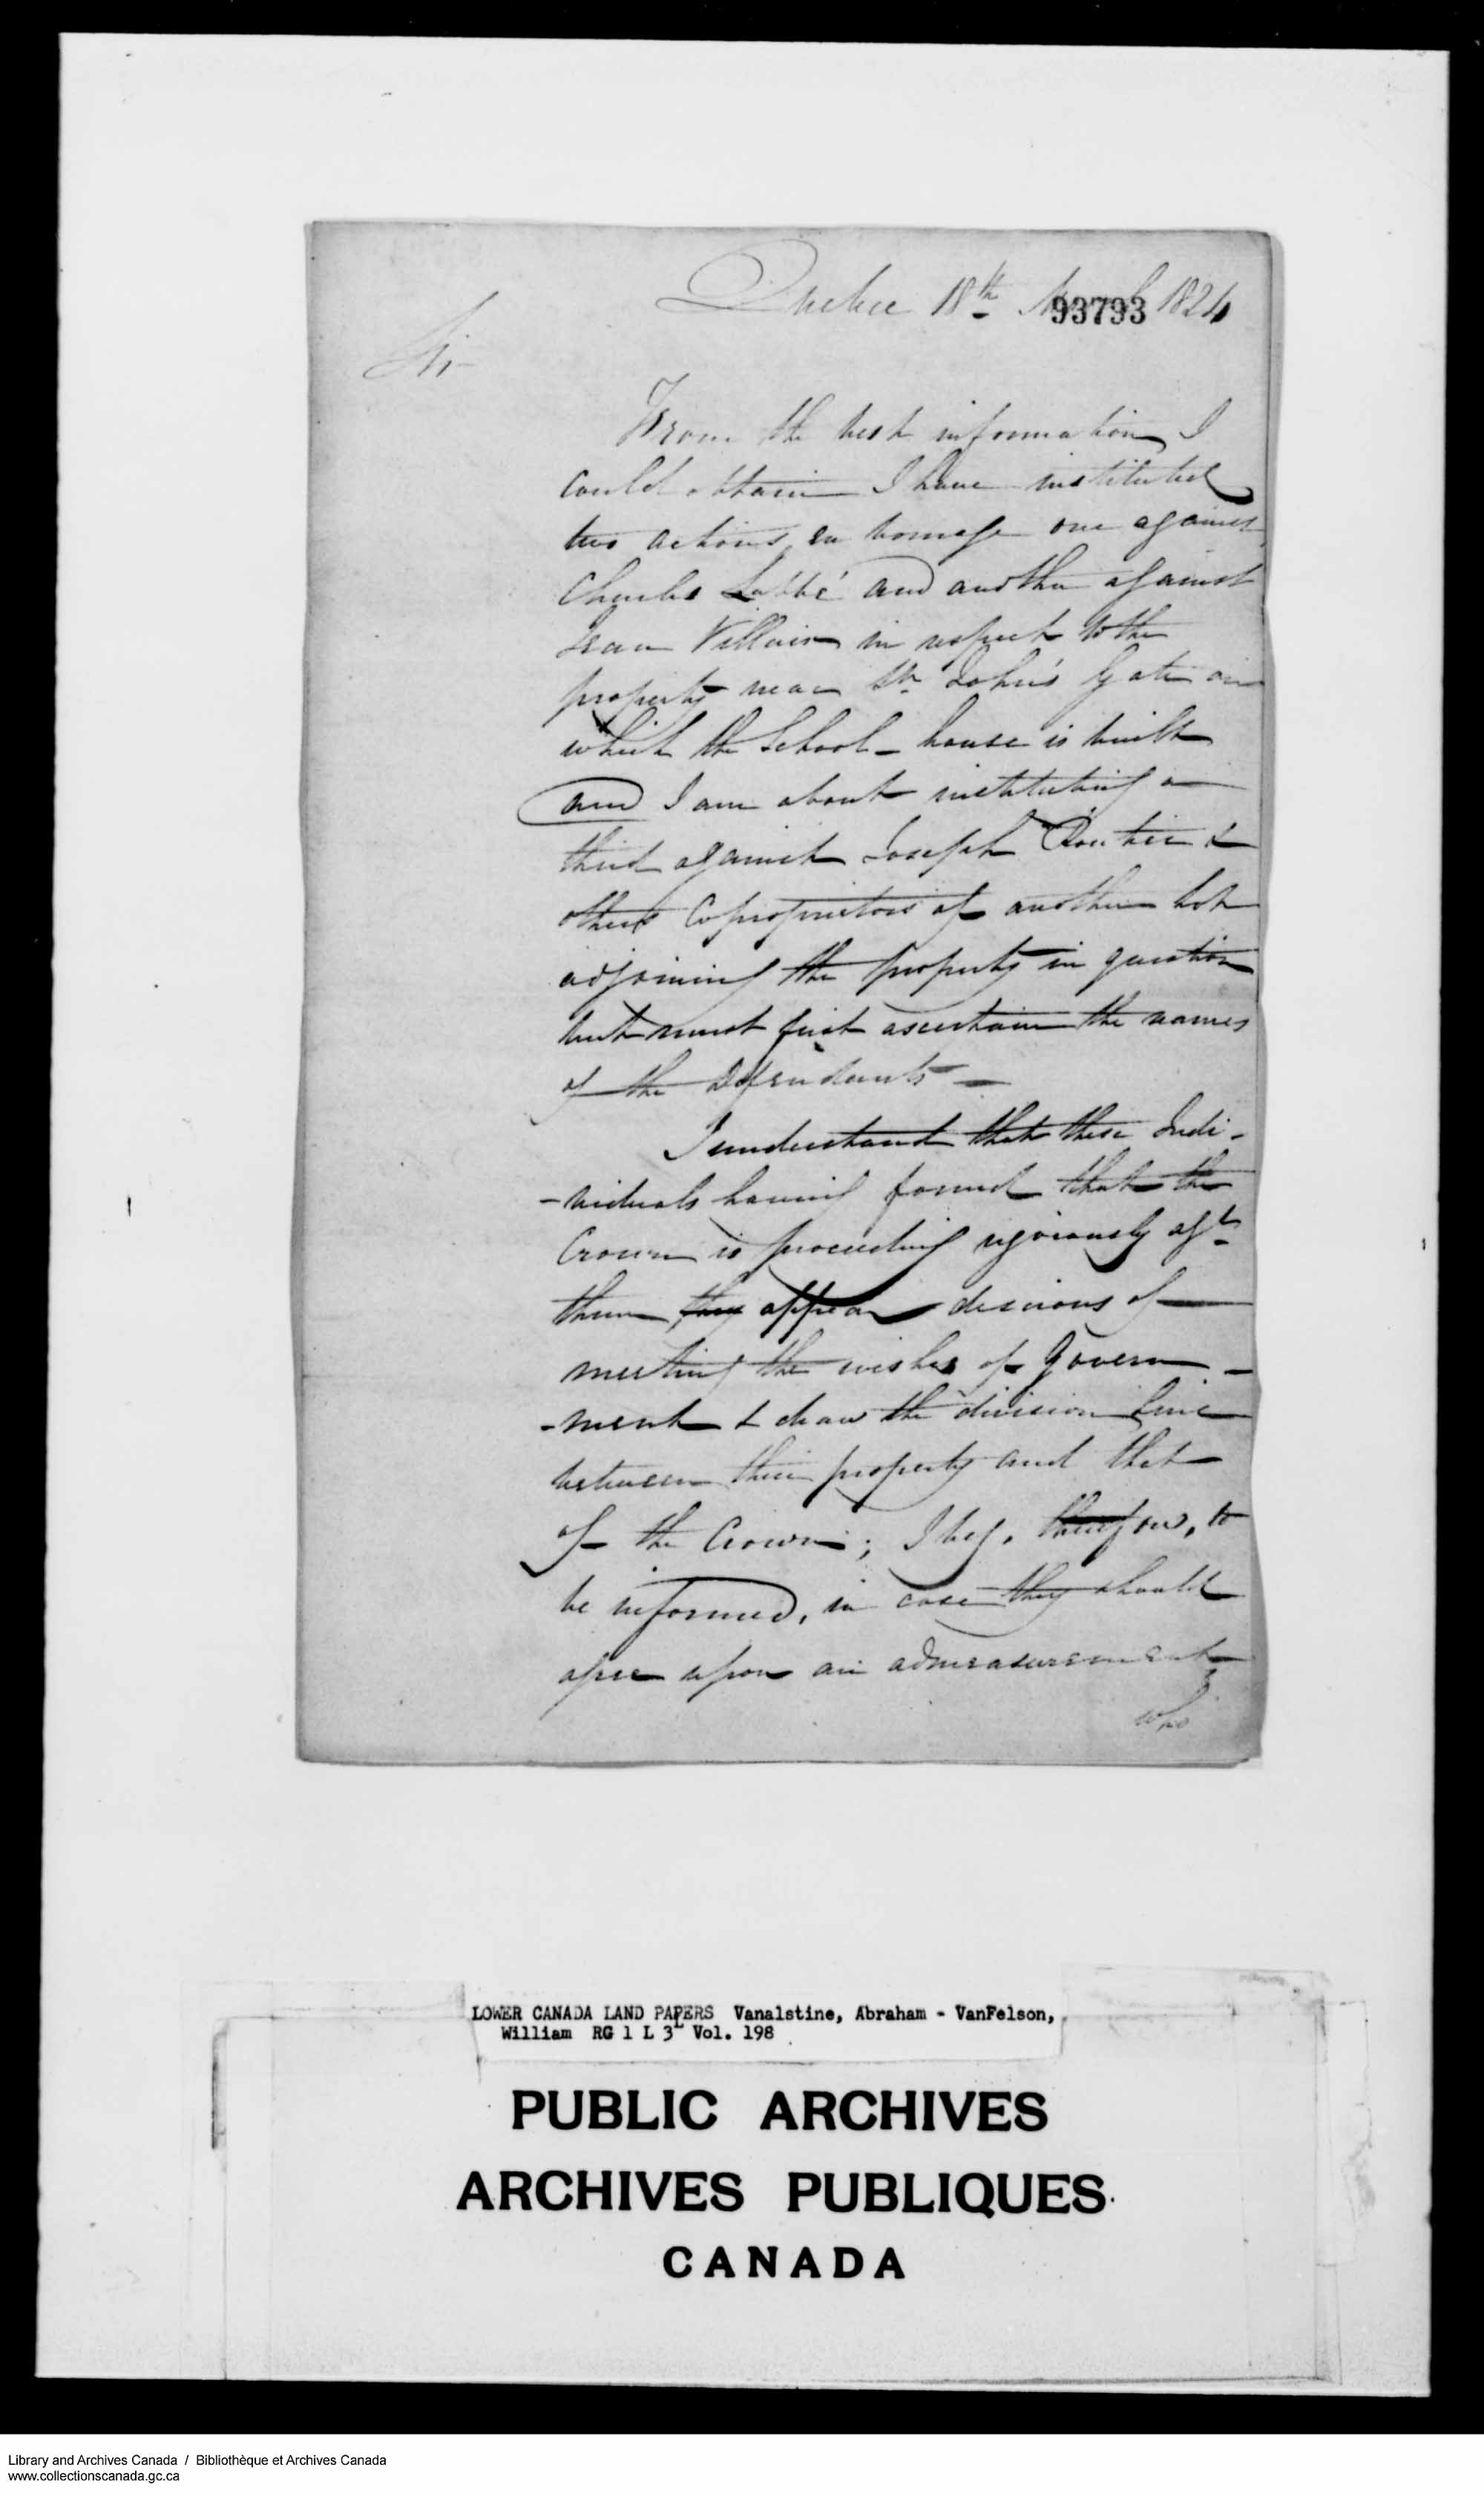 Quebec 18th March 1824
93793
Sir
From the best information I
could obtain I have instituted
two actions en bornage one against
Charles Labbé and another against
Jean Villair in respect to the
property near St. John's Gate on
which the School-house is built
and I am about instituting a
third against Joseph Cloutier &
others Coproprietors of another lot
adjoining the property in question
but must first ascertain the names
of the Defendants —
I understand that these Indi-
-viduals having found that the
Crown is proceeding rigorously agt
them, they appear desirous of
meeting the wishes of Govern-
-ment & draw the division line
between their property and that
of the Crown; I beg, therefore, to
be informed, in case they should
agree upon an admeasurement
who
LOWER CANADA LAND PAPERS Vanalstine, Abraham - VanFelson,
William RG 1 L 3L Vol. 198
PUBLIC ARCHIVES
ARCHIVES PUBLIQUES
CANADA
Library and Archives Canada / Bibliothèque et Archives Canada
www.collectionscanada.gc.ca